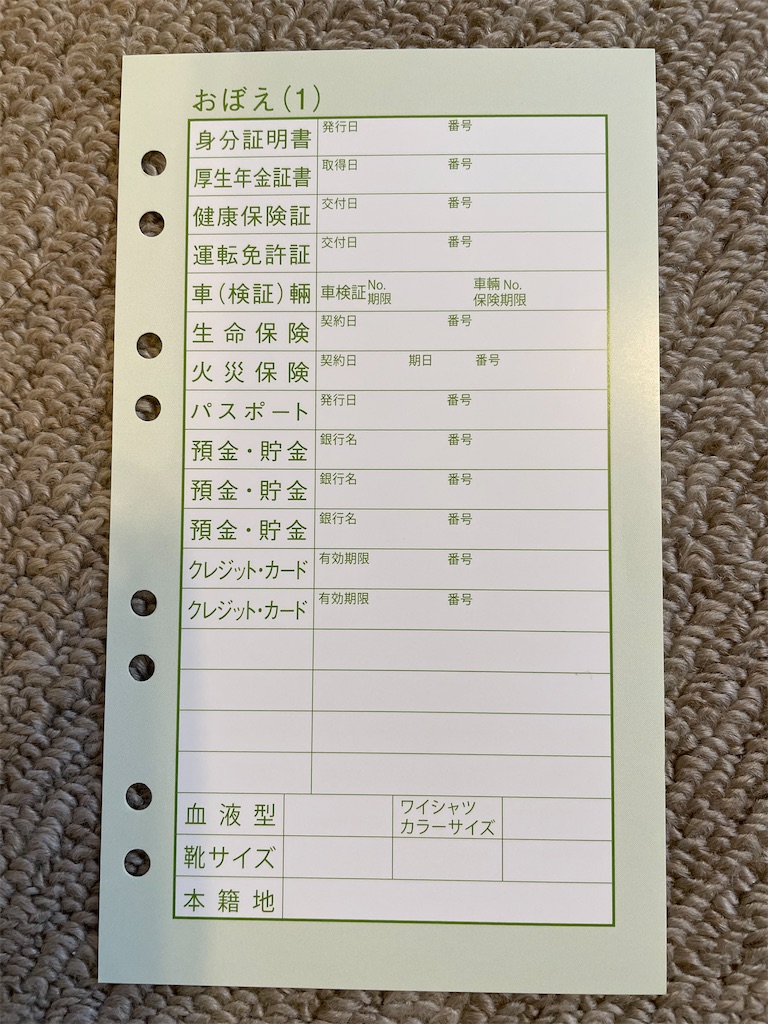 おぼえ(1)
身分証明書 発行日 番号
厚生年金証書 取得日 番号
健康保険証 交付日 番号
運転免許証 交付日 番号
車(検証)輛 車検証 No. 期限 車輛 No. 保険期限
生命保険 契約日 番号
火災保険 契約日 期日 番号
パスポート 発行日 番号
預金・貯金 銀行名 番号
預金・貯金 銀行名 番号
預金・貯金 銀行名 番号
クレジット・カード 有効期限 番号
クレジット・カード 有効期限 番号
血液型 ワイシャツ カラーサイズ
靴サイズ
本籍地